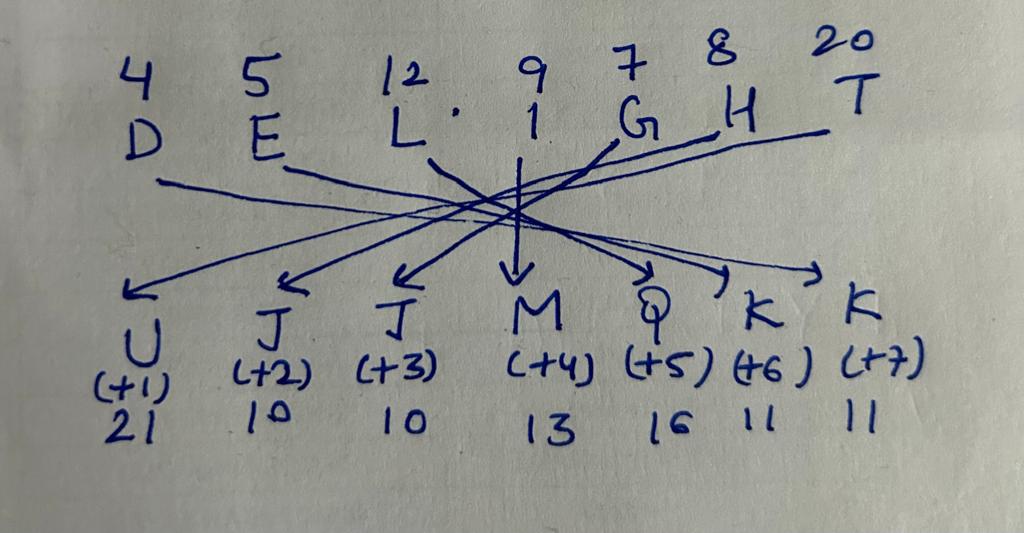 4 5 12 9 7 8 20
D E L I G H T
U J J M Q K K
(+1) (+2) (+3) (+4) (+5) (+6) (+7)
21 10 10 13 16 11 11